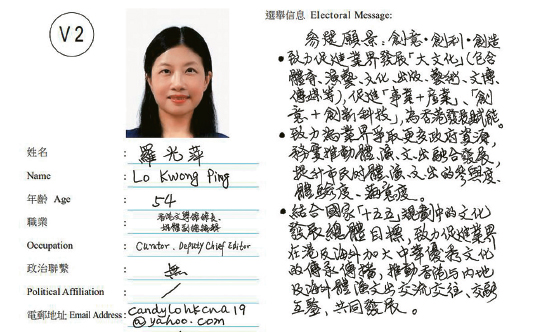 V2
姓名 : 羅光萍
Name : Lo Kwong Ping
年齡 Age : 54
職業 : 香港文學館館長、
媒體副總編輯
Occupation : Curator, Deputy Chief Editor
政治聯繫 : 無
Political Affiliation : /
電郵地址 Email Address : candylohkcna19
@yahoo.com
選舉信息 Electoral Message:
參選願景:創意·創利·創造
• 致力促進業界發展「大文化」(包合
體育、演藝、文化、出版、藝術、文博、
傳媒等),促進「事業+產業」、「創
意+創新科技」,為香港發展賦能。
• 致力為業界爭取更多政府資源,
務要推動體、演、文、出融合發展,
提升市民的體、演、文、出的參與度、
體驗度、滿意度。
• 結合國家「十五五」規劃中的文化
發展總體目標,致力促進業界
在港及海外加大中華優秀文化
的傳承傳播,推動香港與內地
及海外體演文出交流交往、交融
互鑒,共同發展。